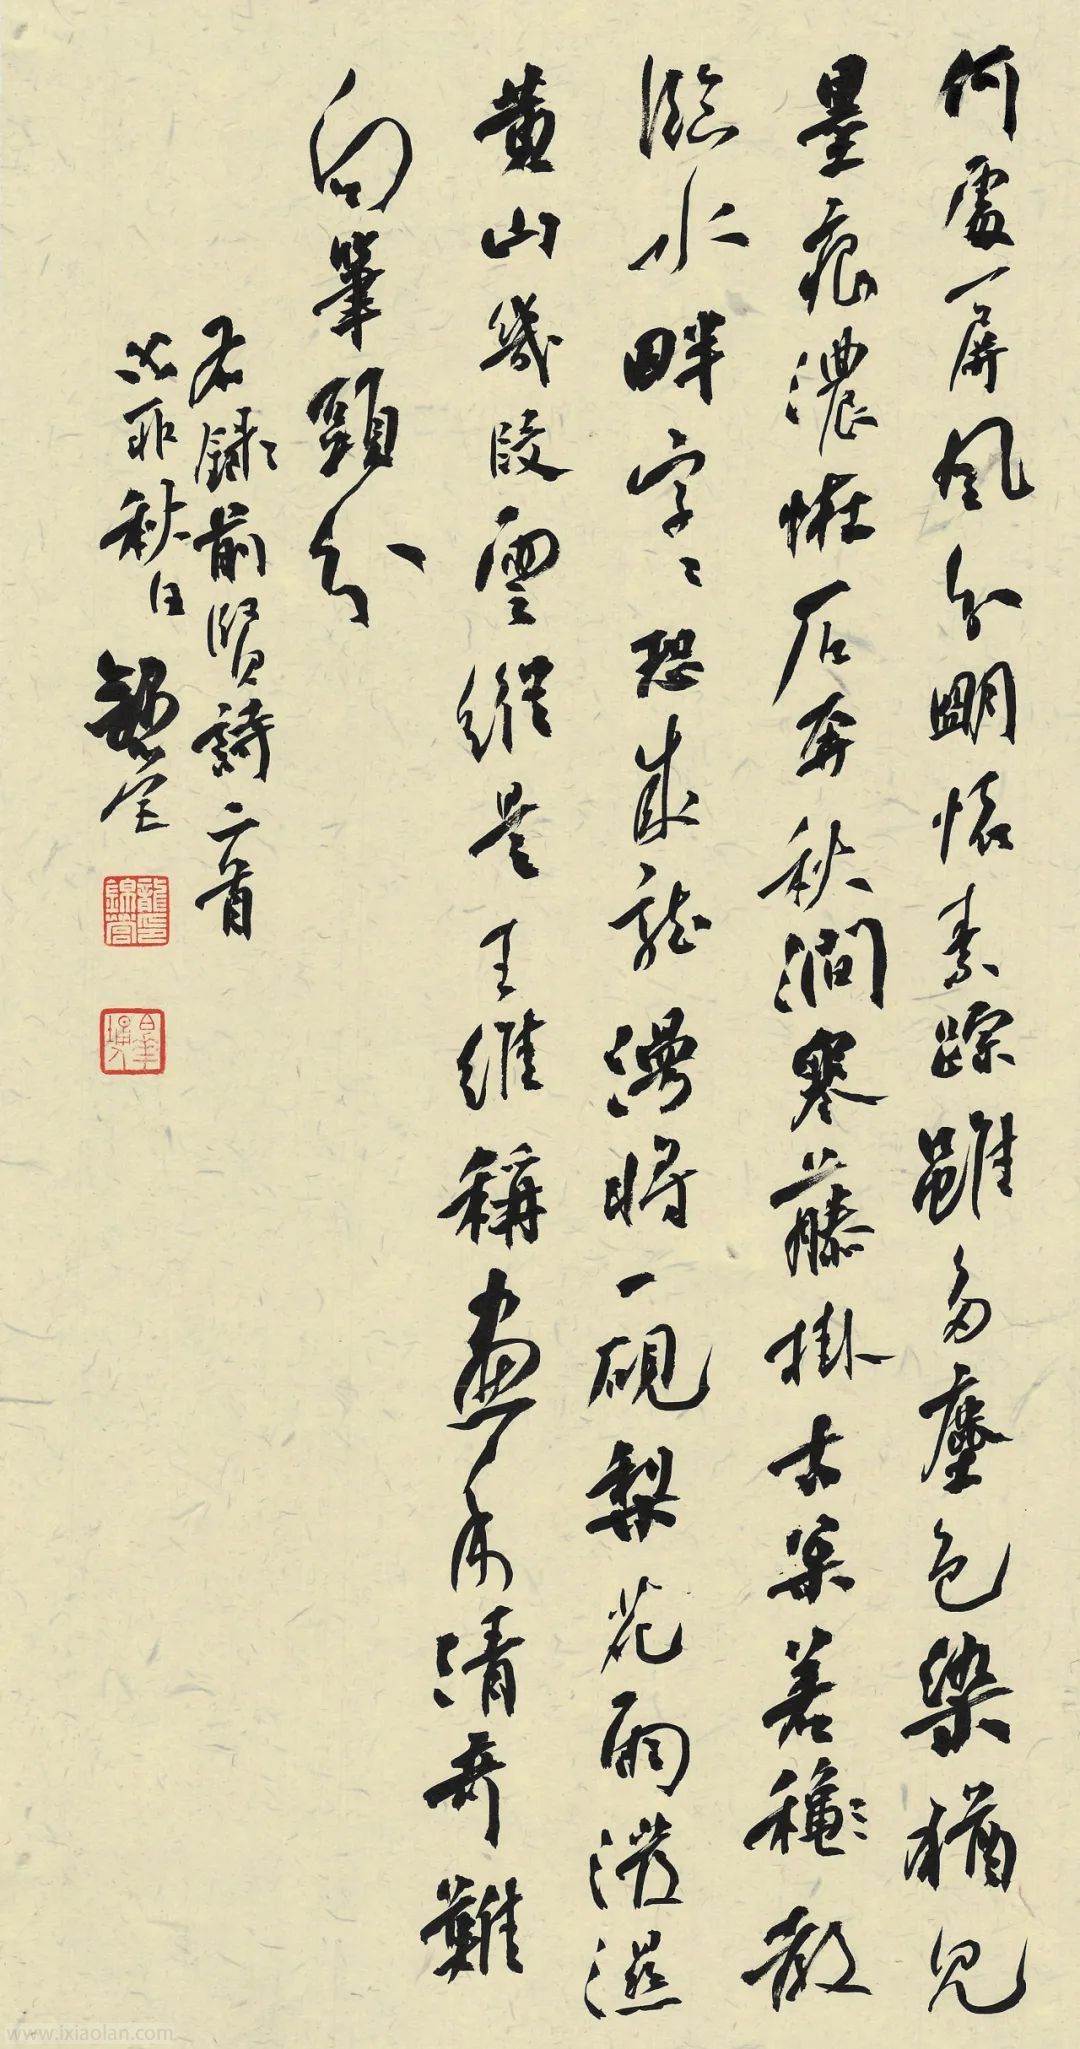 何處一屏風分明懷素踪雖多塵色染猶見
墨痕濃怪石奔秋澗寒藤掛古松若穐教
臨水畔字々恐成龍漫將一硯梨花雨潑濕
黄山幾段雲縱是王維稱畫手清奇難
向筆頭分
右錄前賢詩二首
秋日
www.ixiaolan.com